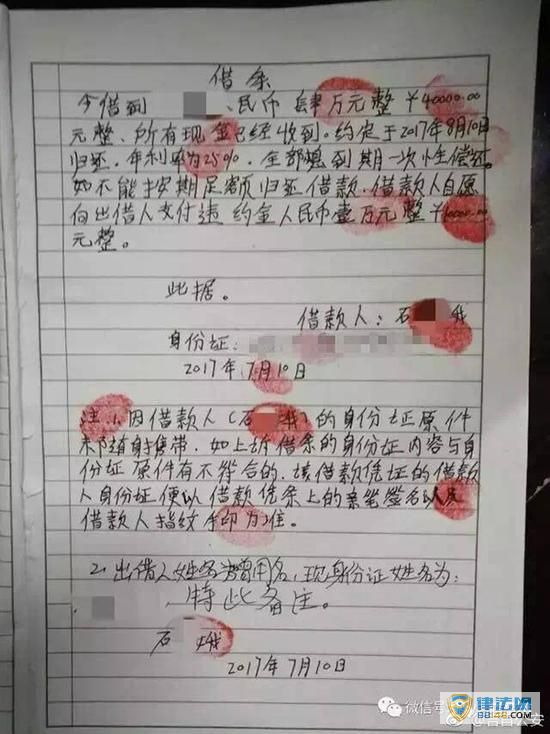 借条
今借到 民币肆万元整¥40000.00
元整、所有现金已经收到。约定于2017年8月10日
归还,年利率为25%,全部 到期一次性偿还。
如不能按期足额归还借款,借款人自愿
向出借人支付违约金人民币壹万元整¥10000.00
元整。
此据。
借款人:石 娥
身份证:
2017年7月10日
注:1、因借款人(石 娥)的身份证原件
未随身携带,如上述借条的身份证内容与身
份证原件有不符合的,该借款凭证的借款
人身份证便以借款凭条上的亲笔签名以及
借款人指纹手印为准。
2、出借人姓名为曾用名,现身份证姓名为:
特此备注。
石 娥
2017年7月10日
微信号
律法网
0048.com